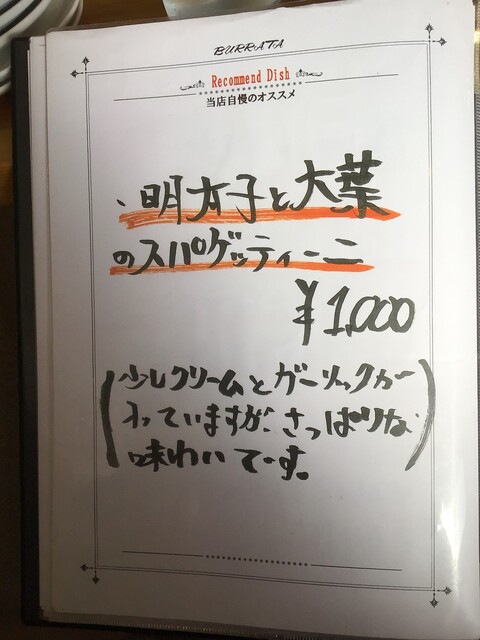 BURRATA
Recommend Dish
当店自慢のオススメ
、明太子と大葉
のスパゲッティーニ
¥1,000
(少しクリームとガーリックが
入っていますが、さっぱりな
味わいでーす。)